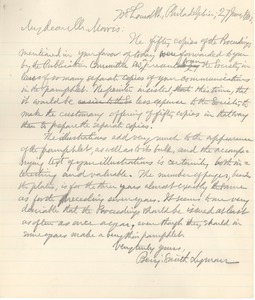 Locust St., Philadelphia, 27 June
My dear Mr. Morris,
The fifty copies of the Proceedings
mentioned in your favor of to-day were forwarded you
by the Publication Committee
the Society in
lieu of so many separate copies of your communications
in the pamphlet. this time, that
it would be less expense to the Society to
make the customary offering of fifty copies in that way
than to prepare the separate copies.
The illustrations add very much to the appearance
of the pamphlet, as well as to its bulk, and the accompa-
nying text of your illustrations is certainly, both in-
teresting and valuable. The number of pages, beside
the plates, is for the three years almost exactly the same
as for the preceding seven years. It seems to me very
desirable that the Proceedings should be issued at least
as often as once a year, even though they should in
some years make a very thin pamphlet.
Very truly yours,
Benj. Smith Lyman.